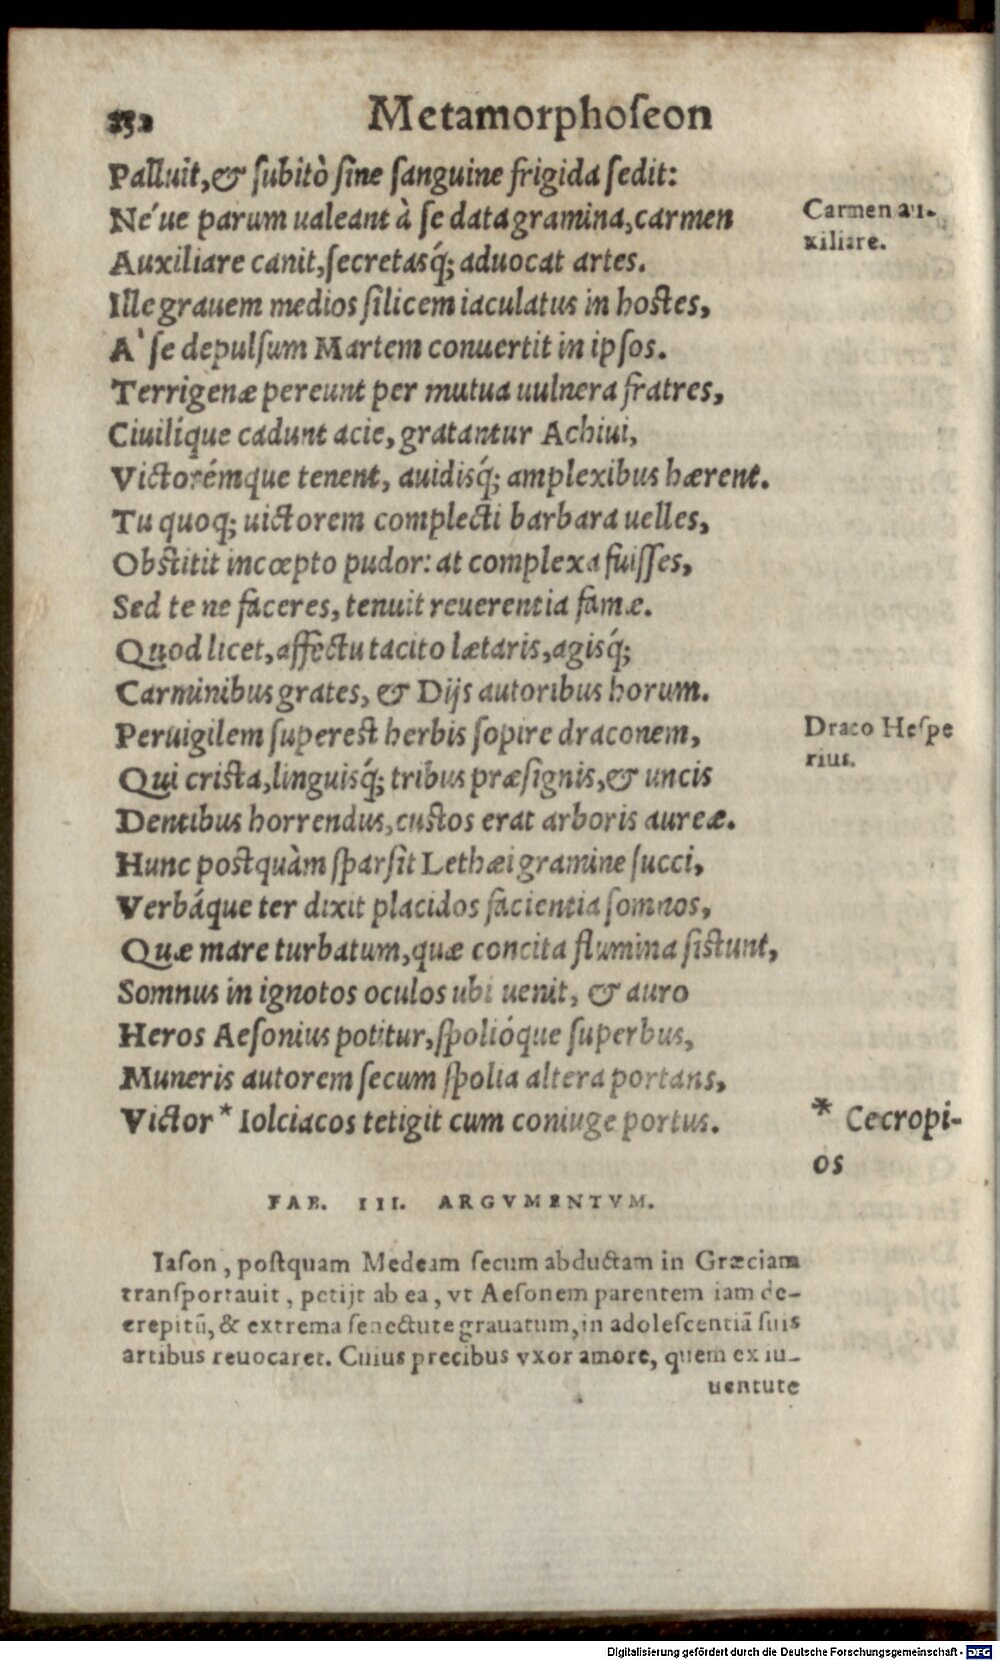 252 Metamorphoſeon
Palluit, & ſubitò ſine ſanguine frigida ſedit:
Né'ue parum ualeant à ſe data gramina, carmen
Carmen au-
xiliare.
Auxiliare canit, ſecretasq́; aduocat artes.
Ille grauem medios ſilicem iaculatus in hostes,
A' ſe depulſum Martem conuertit in ipſos.
Terrigenæ pereunt per mutua uulnera fratres,
Ciuilíque cadunt acie, gratantur Achiui,
Victorémque tenent, auidisq́; amplexibus hærent.
Tu quoq; uictorem complecti barbara uelles,
Obstitit incœpto pudor: at complexa fuiſſes,
Sed te ne faceres, tenuit reuerentia famæ.
Quod licet, affectu tacito lætaris, agisq́;
Carminibus grates, & Dijs autoribus horum.
Peruigilem ſuperest herbis ſopire draconem,
Draco Heſpe
rius.
Qui crista, linguisq́; tribus præſignis, & uncis
Dentibus horrendus, custos erat arboris aureæ.
Hunc postquàm ſparſit Lethæi gramine ſucci,
Verbáque ter dixit placidos facientia ſomnos,
Quæ mare turbatum, quæ concita flumina ſistunt,
Somnus in ignotos oculos ubi uenit, & auro
Heros Aeſonius potitur, ſpolióque ſuperbus,
Muneris autorem ſecum ſpolia altera portans,
Victor * Iolciacos tetigit cum coniuge portus.
* Cecropi-
os
FAB. III. ARGVMENTVM.
Iaſon, poſtquam Medeam ſecum abductam in Græciam
tranſportauit, petijt ab ea, vt Aeſonem parentem iam de-
crepitũ, & extrema ſenectute grauatum, in adoleſcentiã ſuis
artibus reuocaret. Cuius precibus vxor amore, quem ex iu-
uentute
Digitalisierung gefördert durch die Deutsche Forschungsgemeinschaft - DFG